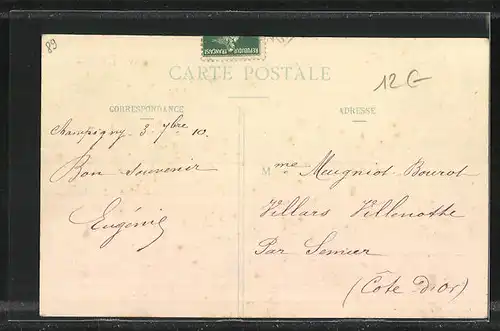 89
REPUBLIQUE FRANÇAISE
CARTE POSTALE
12 G
CORRESPONDANCE
Champigny 3 7bre 10.
Bon Souvenir
Eugénie
ADRESSE
Mme Meugniot-Bourot
Villars Villenotte
Par Semur
(Côte d'Or)